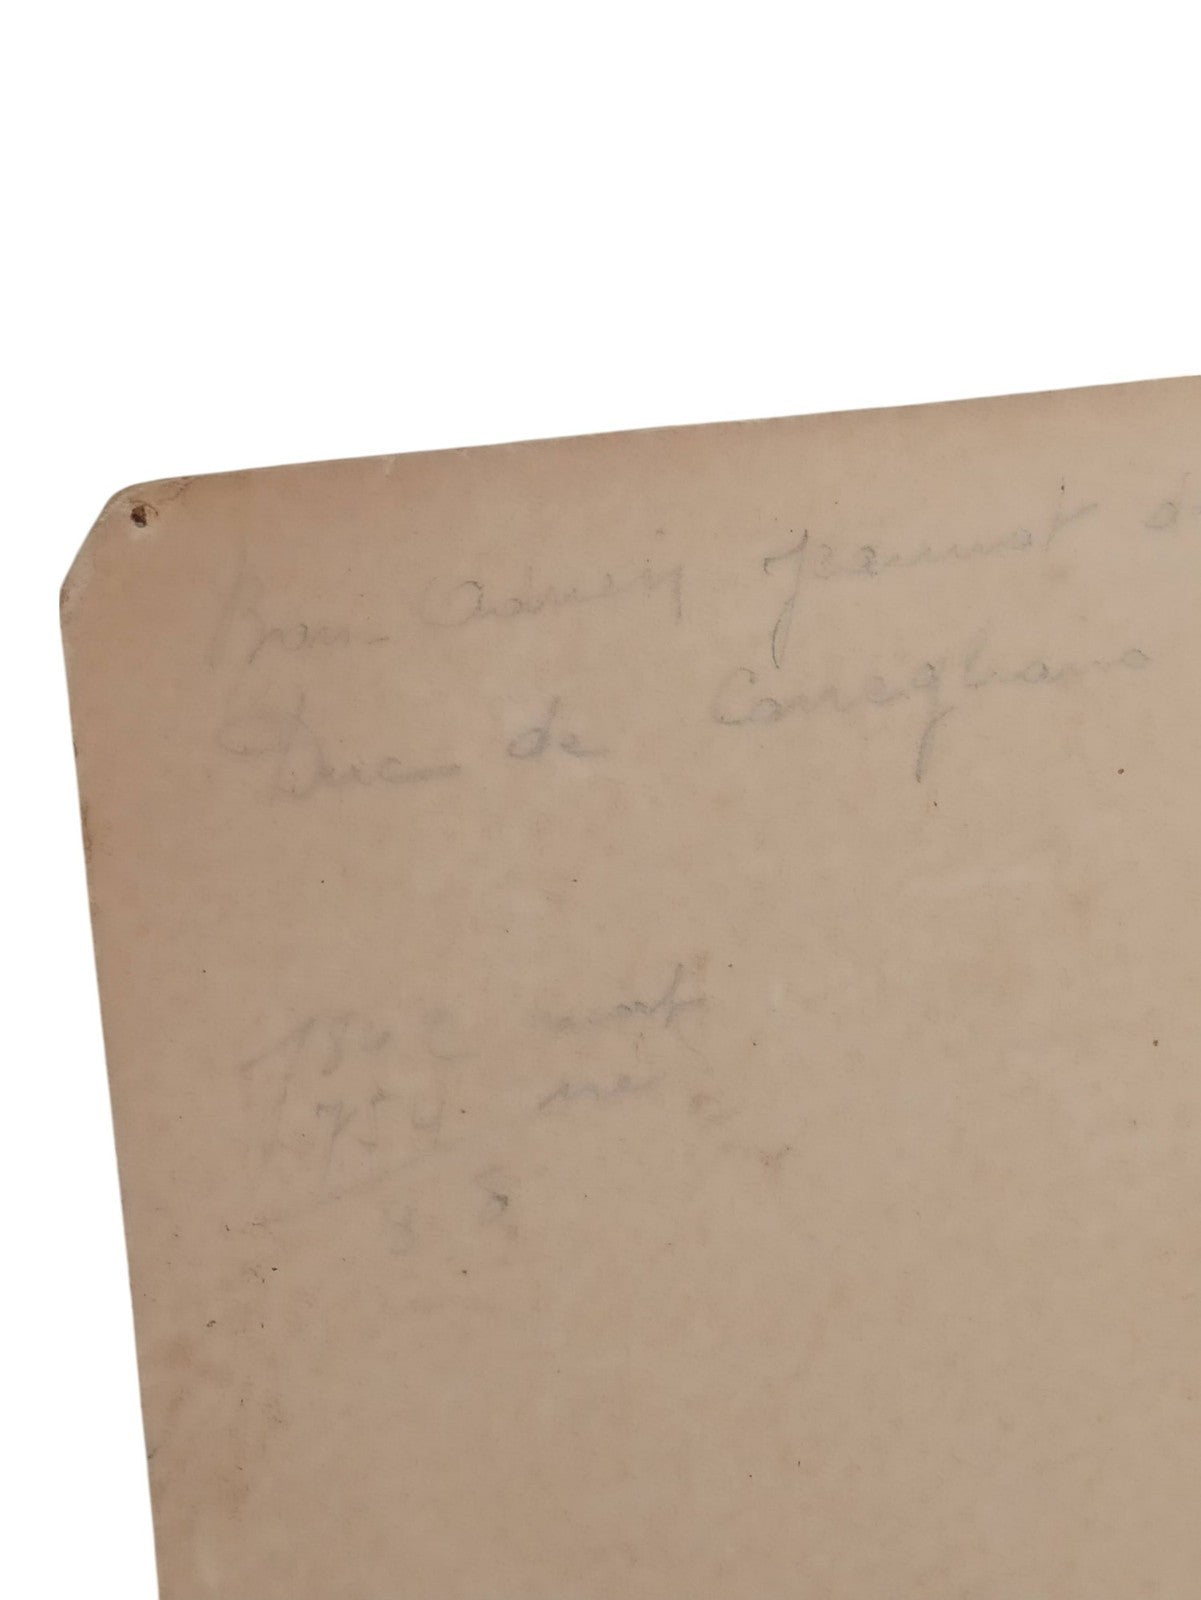 Bon Adrien Jeannot d
Duc de Conegliano
1842 mort
1754 né
88